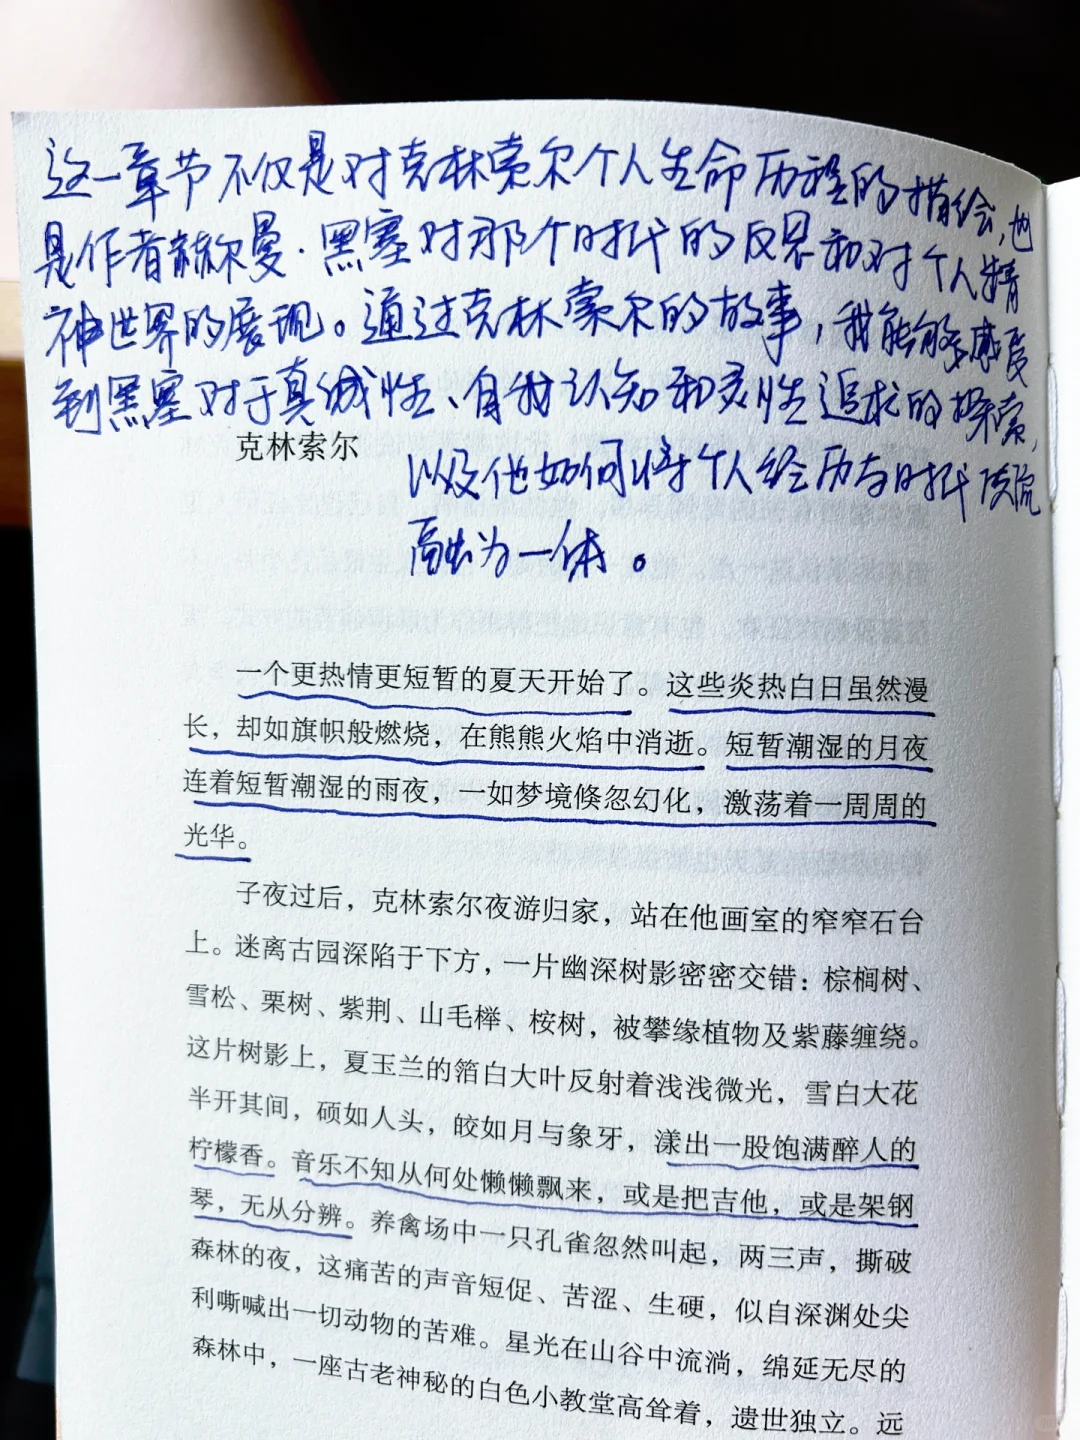 这一章节不仅是对克林索尔个人生命历程的描绘，也
是作者赫尔曼·黑塞对那个时代的反思和对个人精
神世界的展现。通过克林索尔的故事，我能够感受
到黑塞对于真诚性、自我认知和灵性追求的探索，
克林索尔
以及他如何将个人经历与时代
融为一体。
一个更热情更短暂的夏天开始了。这些炎热白日虽然漫
长，却如旗帜般燃烧，在熊熊火焰中消逝。短暂潮湿的月夜
连着短暂潮湿的雨夜，一如梦境倏忽幻化，激荡着一周周的
光华。
子夜过后，克林索尔夜游归家，站在他画室的窄窄石台
上。迷离古园深陷于下方，一片幽深树影密密交错：棕榈树、
雪松、栗树、紫荆、山毛榉、桉树，被攀缘植物及紫藤缠绕。
这片树影上，夏玉兰的箔白大叶反射着浅浅微光，雪白大花
半开其间，硕如人头，皎如月与象牙，漾出一股饱满醉人的
柠檬香。音乐不知从何处懒懒飘来，或是把吉他，或是架钢
琴，无从分辨。养禽场中一只孔雀忽然叫起，两三声，撕破
森林的夜，这痛苦的声音短促、苦涩、生硬，似自深渊处尖
利嘶喊出一切动物的苦难。星光在山谷中流淌，绵延无尽的
森林中，一座古老神秘的白色小教堂高耸着，遗世独立。远